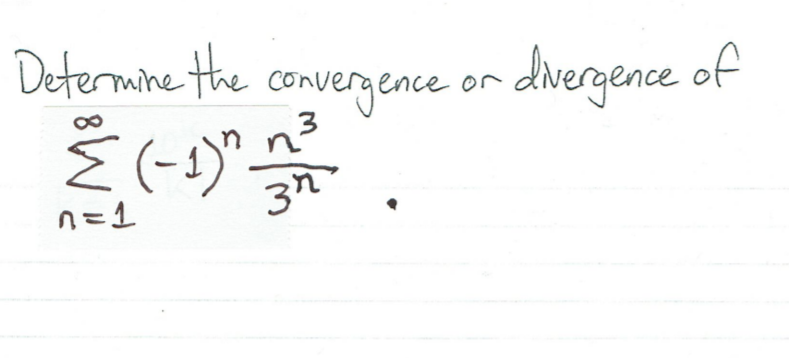 Determine the convergence or divergence of
∞
Σ (-1)ⁿ n³/3ⁿ .
n=1